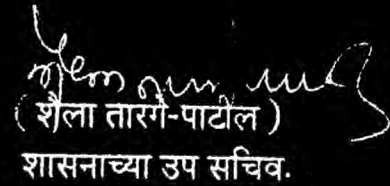 ( शैला तारगे-पाटील )
शासनाच्या उप सचिव.